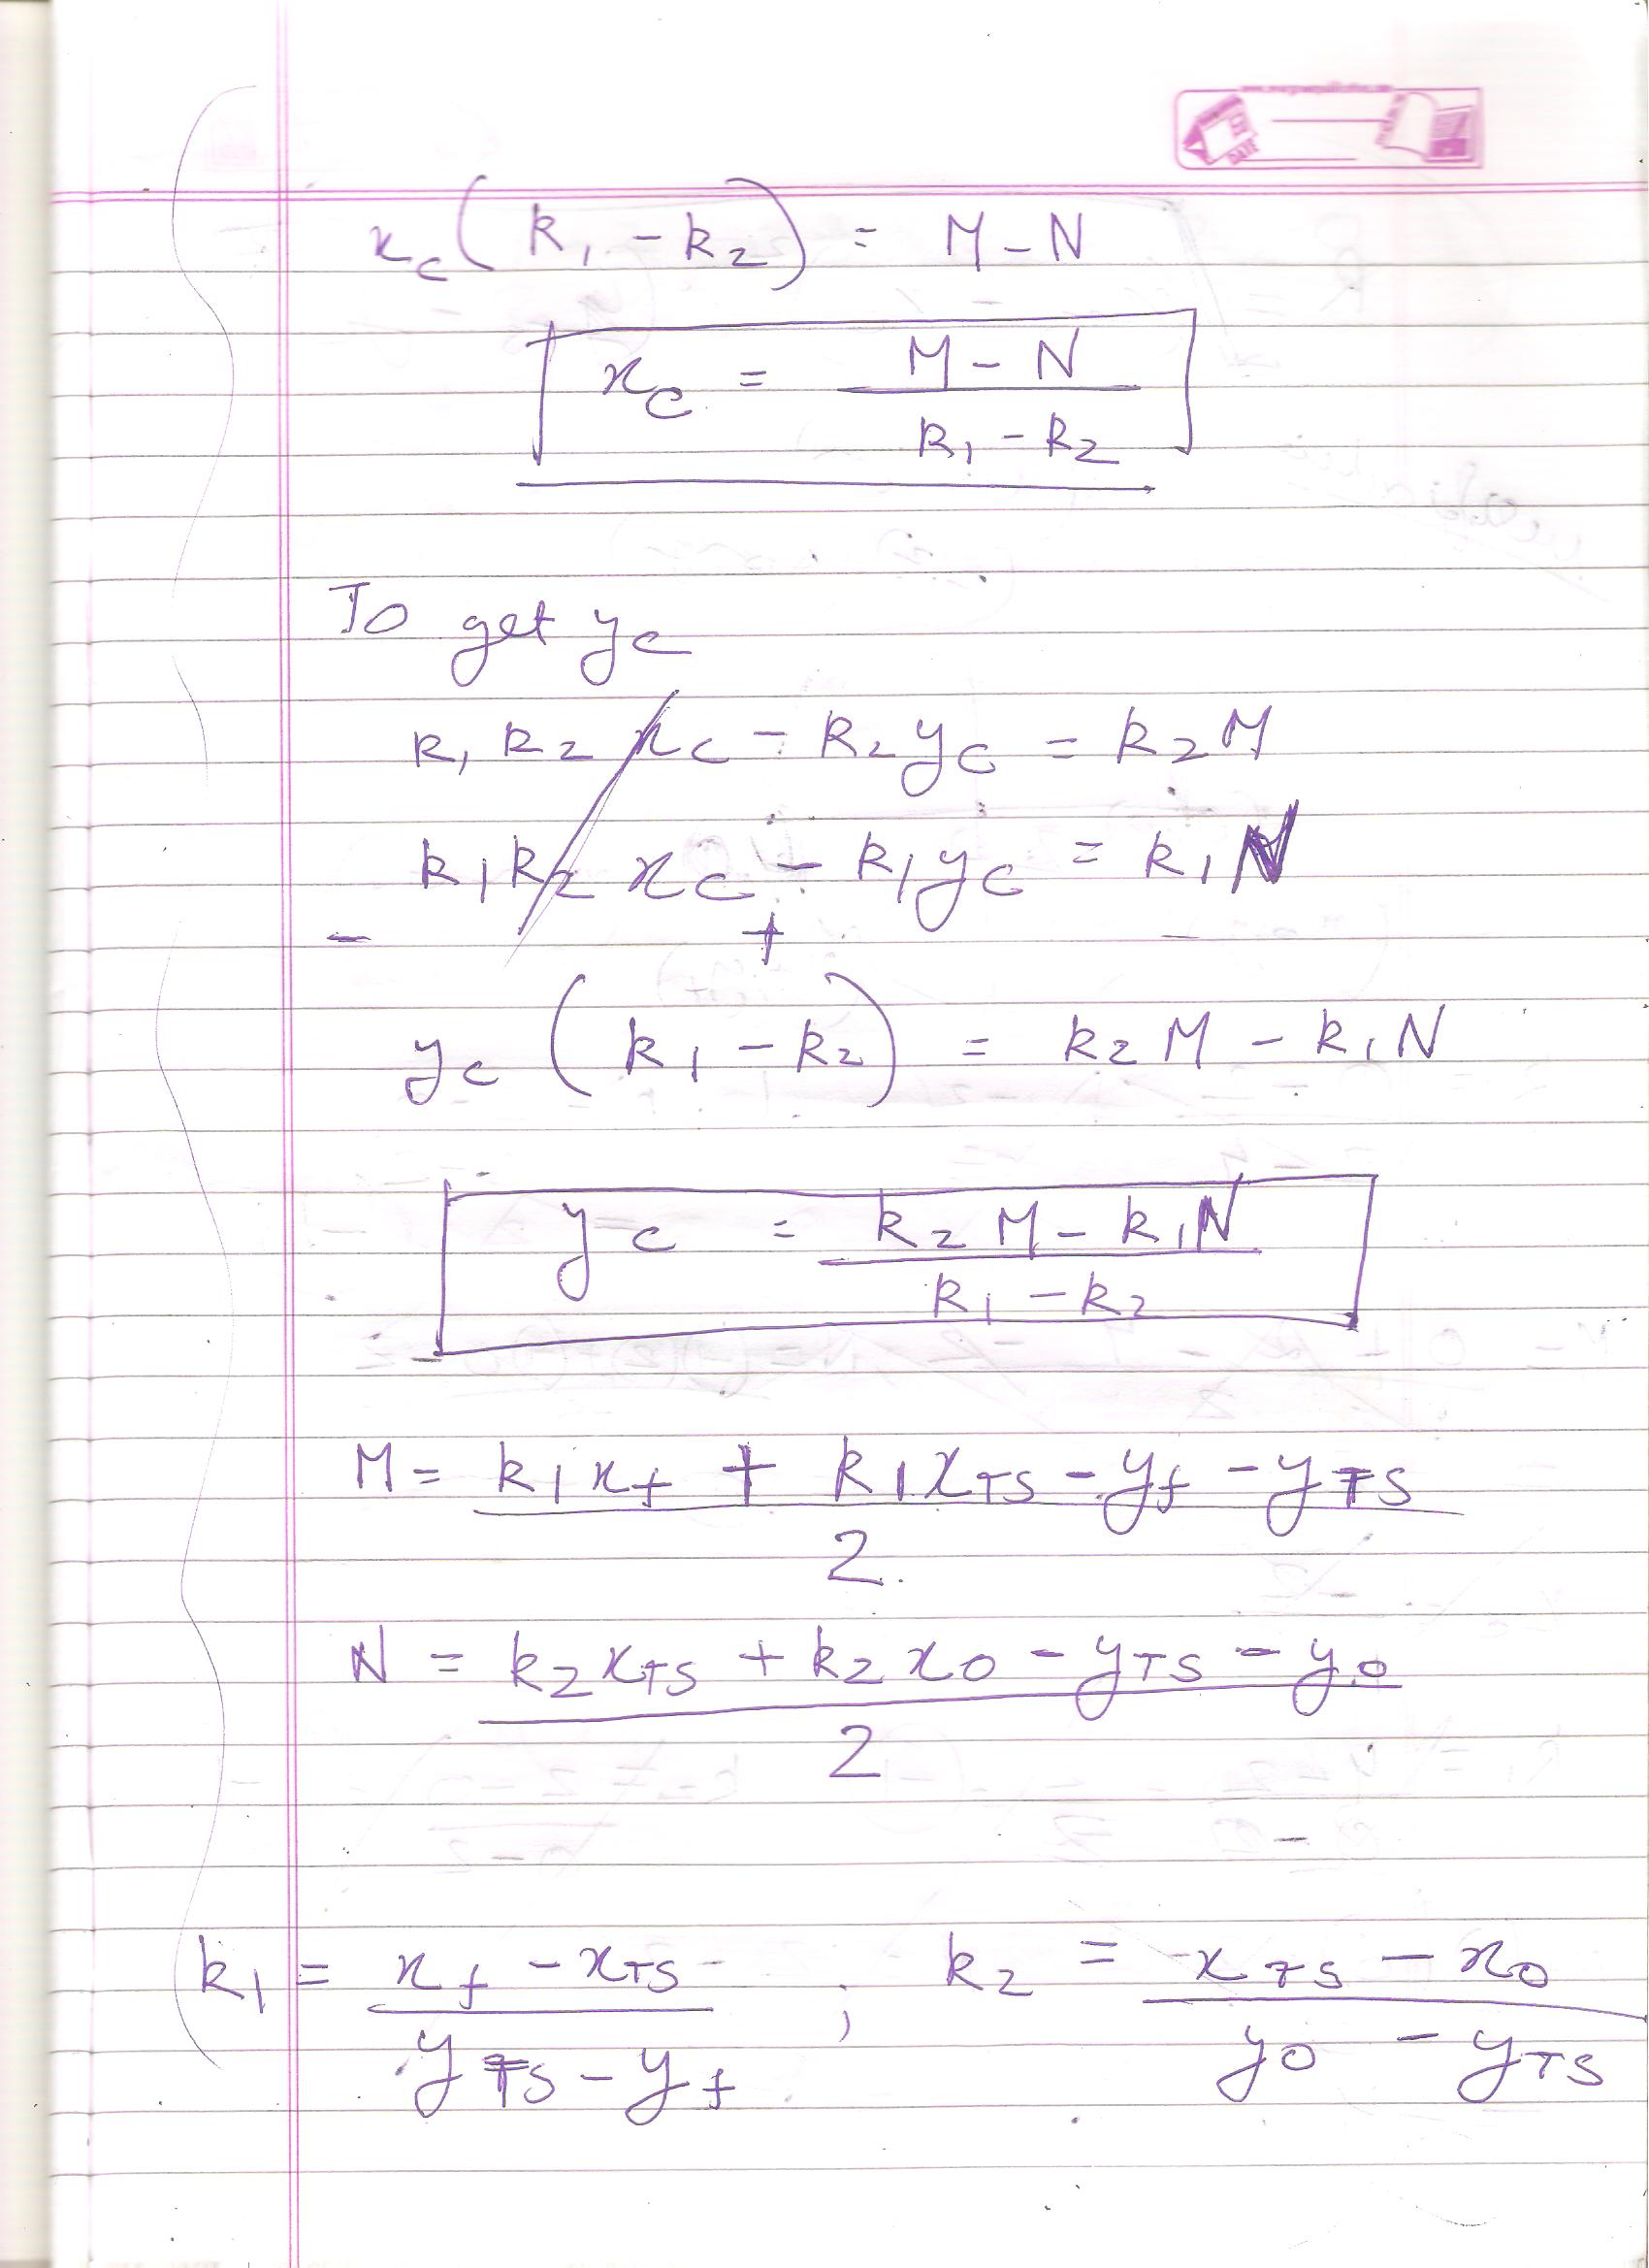 x_c (k_1 - k_2) = M - N
x_c = (M - N) / (k_1 - k_2)
To get y_c
k_1 k_2 x_c - k_2 y_c = k_2 M
k_1 k_2 x_c - k_1 y_c = k_1 N
- + -
y_c (k_1 - k_2) = k_2 M - k_1 N
y_c = (k_2 M - k_1 N) / (k_1 - k_2)
M = (k_1 x_f + k_1 x_TS - y_f - y_TS) / 2
N = (k_2 x_TS + k_2 x_0 - y_TS - y_0) / 2
k_1 = (x_f - x_TS) / (y_TS - y_f) ; k_2 = (x_TS - x_0) / (y_0 - y_TS)